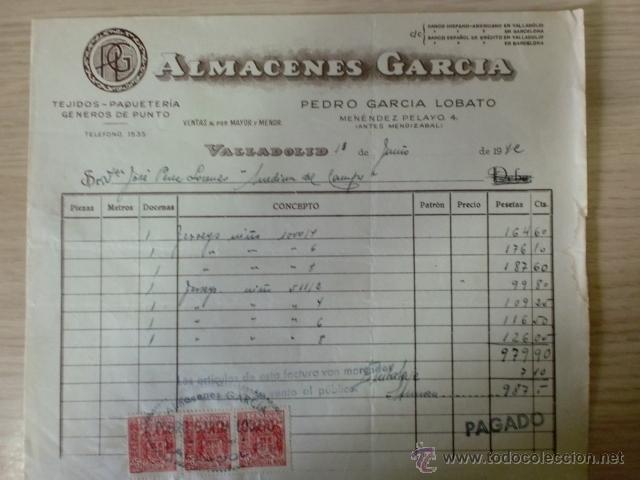 c/c BANCO HISPANO-AMERICANO EN VALLADOLID
" " " EN BARCELONA
BANCO ESPAÑOL DE CRÉDITO EN VALLADOLID
" " " EN BARCELONA
PG
ALMACENES GARCIA
TEJIDOS - PAQUETERÍA
GÉNEROS DE PUNTO
TELÉFONO, 1535
VENTAS AL POR MAYOR Y MENOR
PEDRO GARCIA LOBATO
MENÉNDEZ PELAYO, 4.
(ANTES MENDIZABAL)
VALLADOLID 18 de Junio de 1942
José Pérez "Medina del Campo" Debe
Piezas Metros Docenas CONCEPTO Patrón Precio Pesetas Cts.
1 Jerseys niño 1000/4 164 60
1 " " " 6 176 10
1 " " " 8 187 60
1 Jerseys niño 511/2 " 99 80
1 " " " 4 109 25
1 " " " 6 116 50
1 " " " 8 126 05
979 90
Los artículos de esta factura van marcados
7 10
al público
987 -
Almacenes GARCIA
PEDRO GARCIA LOBATO
PAGADO
www.todocoleccion.net